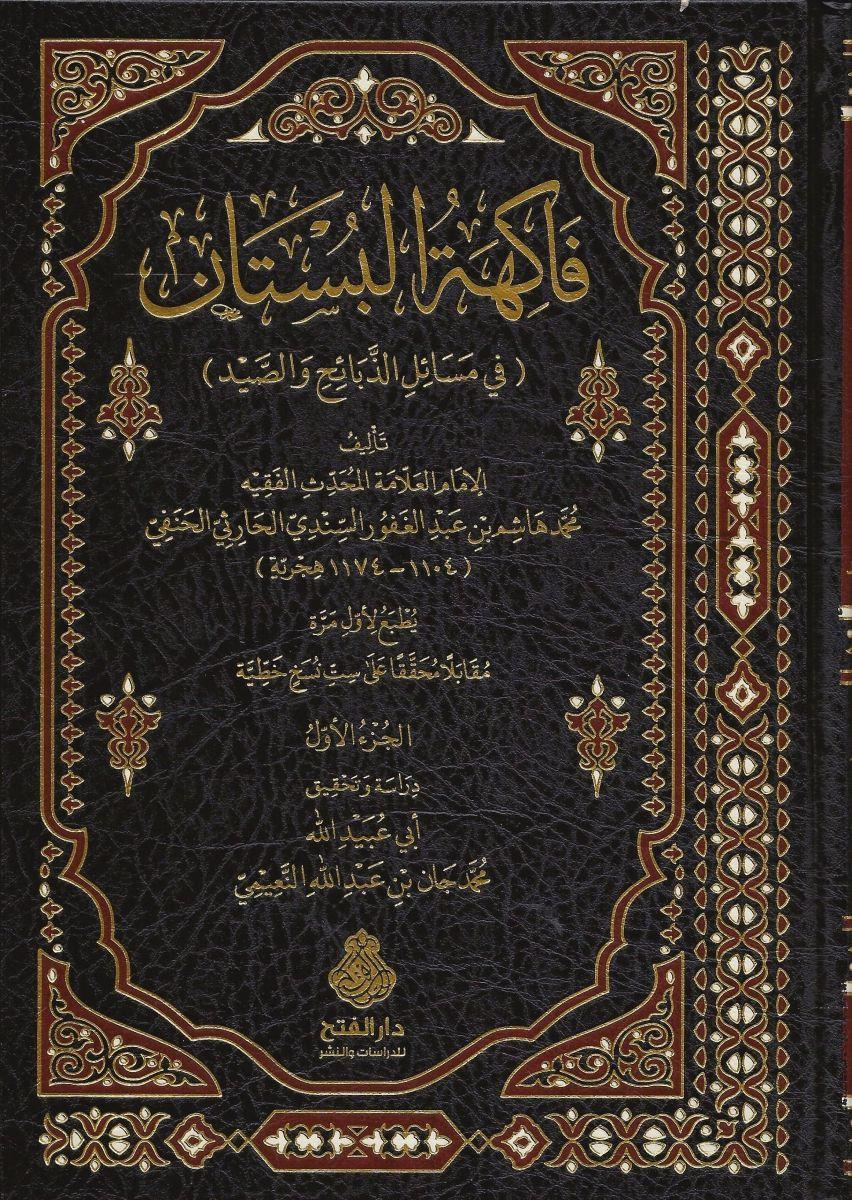 فَاكِهَةُ البُسْتَان
(في مَسَائِلِ الذَّبَائِحِ وَالصَّيْدِ)
تَأْلِيفُ
الإِمَامِ العَلَّامَةِ المُحَدِّثِ الفَقِيهِ
مُحَمَّد هَاشِم بْنِ عَبْدِ الغَفُورِ السِّنْدِيِّ الحَارِثِيِّ الحَنَفِيِّ
(١١٠٤ – ١١٧٤ هِجْرِيّة)
يُطْبَعُ لِأَوَّلِ مَرَّة
مُقَابَلًا مُحَقَّقًا عَلَى سِتِّ نُسَخٍ خَطِّيَّة
الجُزْءُ الأَوَّلُ
دِرَاسَة وَتَحْقِيق
أَبي عُبَيْدِ الله
مُحَمَّد جَان بْنِ عَبْدِ اللهِ النَّعِيمِيّ
دار الفتح
للدراسات والنشر